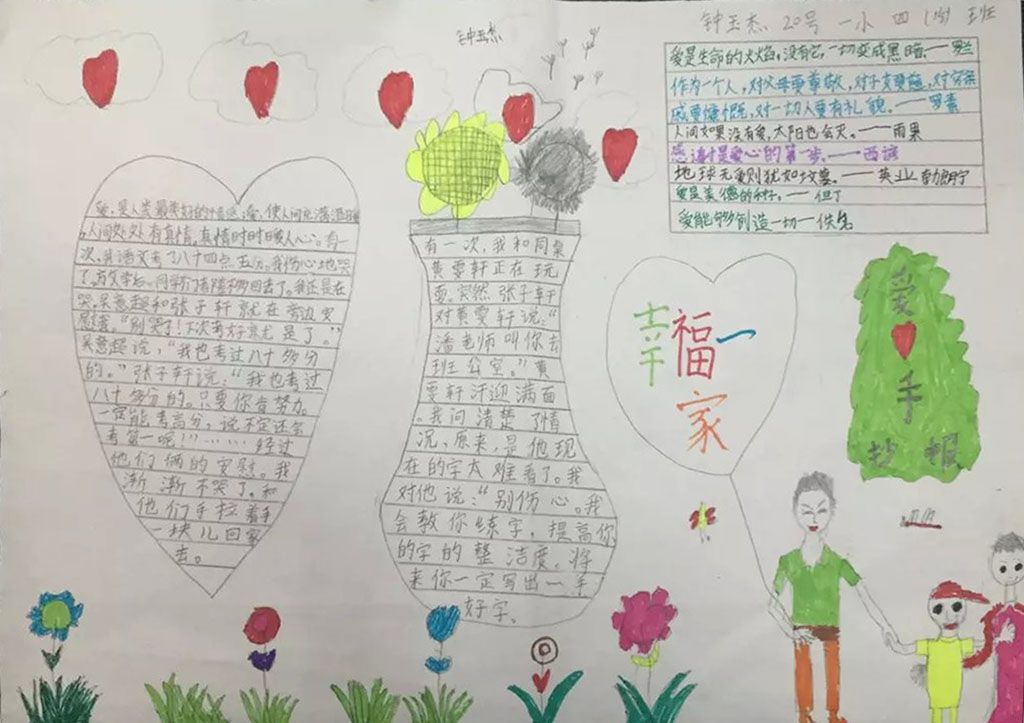 钟玉杰 20号 一小 四 班
钟玉杰
爱是生命的火焰,没有它,一切变成黑暗.——罗兰
作为一个人,对父母要尊敬,对子女要慈,对穷亲
戚要慷慨,对一切人要有礼貌。——罗素
人间如果没有爱,太阳也会灭。——雨果
感谢是爱心的第一步。——西谚
地球无爱则犹如坟墓。——英业 勃朗宁
爱是美德的种子。——但丁
爱能够创造一切—佚名
爱,是人类最美好的 爱,使人间充满温暖
,人间处处有真情,真情时时暖人心。有一
次,我语文考了八十四点五分,我伤心地哭
了,放学后,同学们 回去了。我还是在
哭,吴意超和张子轩就在旁边安
慰道:“别哭了!下次考好就是了。”
吴意超说,“我也考过八十多分
的。”张子轩说:“我也考过
八十多分的。只要你肯努力。
一定能考高分,说不定还会
考第一呢!”……经过
他们俩的安慰。我
渐渐不哭了。和
他们手拉着手
一块儿回家
去。
有一次,我和同桌
黄雯轩正在玩
耍。突然张子轩
对黄雯轩说:“
潘老师叫你去
班公室。”黄
雯轩汗迎满面
。我问清楚了情
况,原来,是他现
在的字太难看了。我
对他说:“别伤心。我
会教你练字,提高你
的字的整洁度。将
来你一定写出一手
好字。
幸福一
家
爱
手
抄报